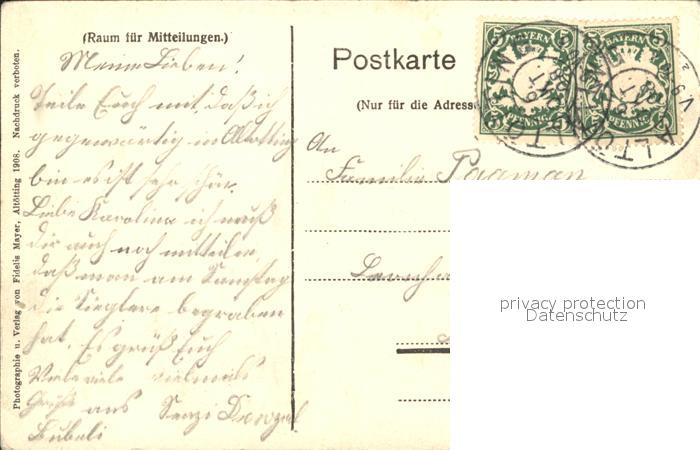 (Raum für Mitteilungen.)
Meine Lieben!
Teile Euch mit, daß ich
gegenwärtig in Altötting
bin es ist sehr schön.
Liebe Karolina ich muß
dir auch noch mitteilen,
daß man am Samstag
die begraben
hat. Es grüßt Euch
Viele viele vielmals
Grüße aus Senzi
Photographie u. Verlag von Fidelis Mayer, Altötting 1908. Nachdruck verboten.
Postkarte
(Nur für die Adresse
An
Familie
BAYERN 5 5 PFENNIG
BAYERN 5 5 PFENNIG
privacy protection
Datenschutz